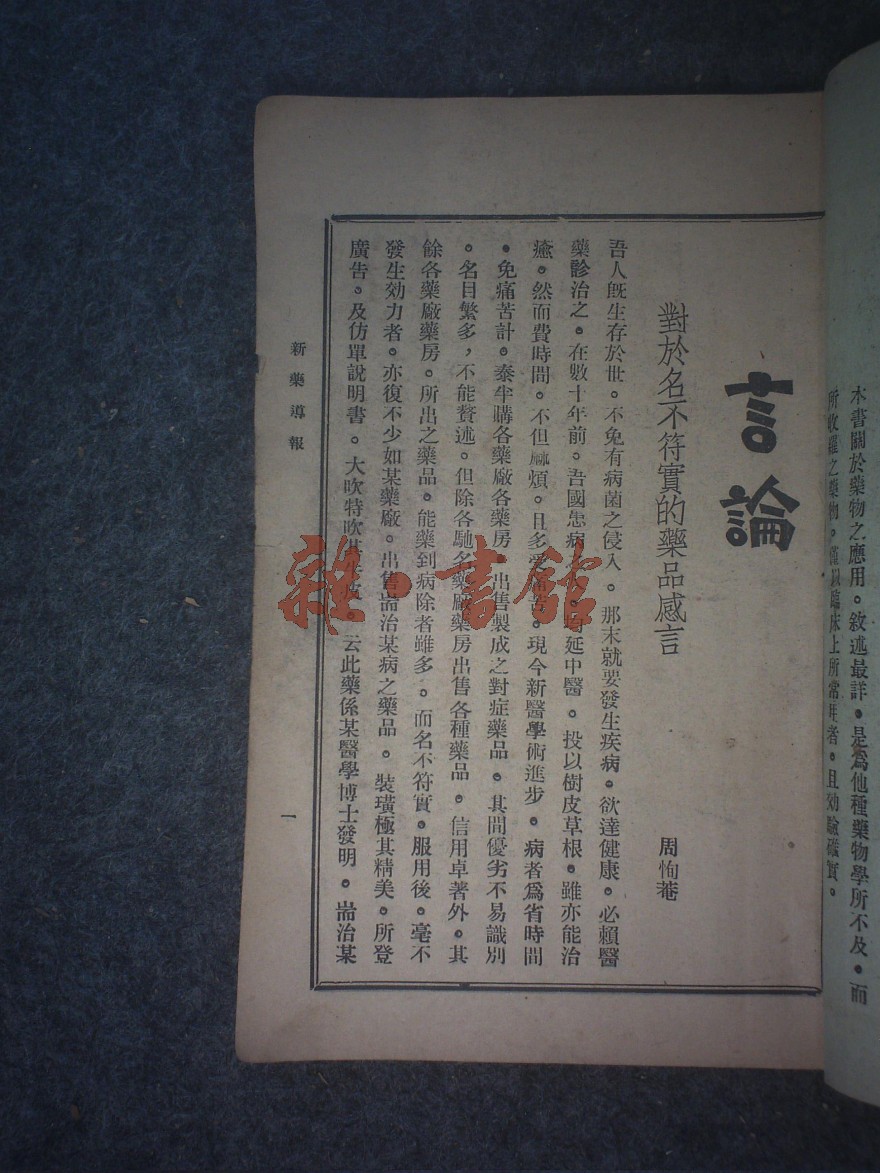 本書關於藥物之應用。敘述最詳。是爲他種藥物學所不及。而
所收羅之藥物。僅以臨床上所常用者。且効驗確實。
言論
對於名不符實的藥品感言
周恂菴
吾人旣生存於世。不免有病菌之侵入。那末就要發生疾病。欲達健康。必賴醫
藥診治之。在數十年前。吾國患病 均延中醫。投以樹皮草根。雖亦能治
癒。然而費時間。不但麻煩。且多受痛苦。現今新醫學術進步。病者爲省時間
。免痛苦計。泰半購各藥廠各藥房。出售製成之對症藥品。其間優劣不易識別
。名目繁多,不能贅述。但除各馳名藥廠藥房出售各種藥品。信用卓著外。其
餘各藥廠藥房。所出之藥品。能藥到病除者雖多。而名不符實。服用後。毫不
發生効力者。亦復不少如某藥廠。出售耑治某病之藥品。裝璜極其精美。所登
廣告。及仿單說明書。大吹特吹其 。云此藥係某醫學博士發明。耑治某
新藥導報
一
雜·書館